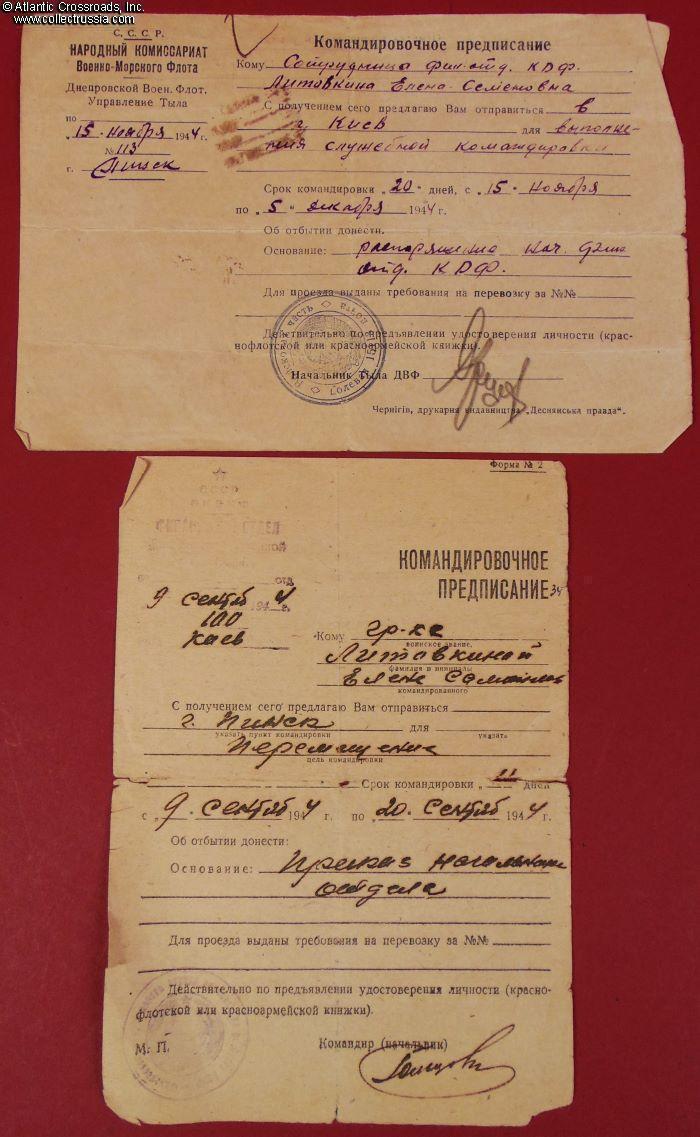 © Atlantic Crossroads, Inc.
www.collectrussia.com
С. С. С. Р.
НАРОДНЫЙ КОМИССАРИАТ
Военно-Морского Флота
Днепровской Воен. Флот.
Управление Тыла
по
„15 ноября 1944 г.
№ 113
г. Пинск
Командировочное предписание
Кому Сотрудница фин-отд. КДФ.
Литовкина Елена Семеновна
С получением сего предлагаю Вам отправиться в
г. Киев для выполне-
ния служебной командировки
Срок командировки „20“ дней, с „15“ ноября
по „5“ декабря 1944 г.
Об отбытии донести.
Основание: распоряжение нач. фин
отд. КДФ.
Для проезда выданы требования на перевозку за №№
Действительно по предъявлении удостоверения личности (крас-
нофлотской или красноармейской книжки).
Начальник Тыла ДВФ
Чернігів, друкарня видавництва „Деснянська правда“.
Форма № 2
СССР
ОТДЕЛ
отд.
КОМАНДИРОВОЧНОЕ
ПРЕДПИСАНИЕ 34
9 сентяб 1944 г.
100
Киев
Кому гр-ке
воинское звание,
Литовкиной
фамилия и инициалы
Елене
командированного
С получением сего предлагаю Вам отправиться
г. Пинск для
указать пункт командировки указать
Перемещение
цель командировки
Срок командировки „11“ дней
с „9. сентяб 1944 г. по „20. сентяб 1944 г.
Об отбытии донести:
Основание: Приказ начальника
отдела
Для проезда выданы требования на перевозку за №№
Действительно по предъявлении удостоверения личности (красно-
флотской или красноармейской книжки).
М. П.
Командир (начальник)